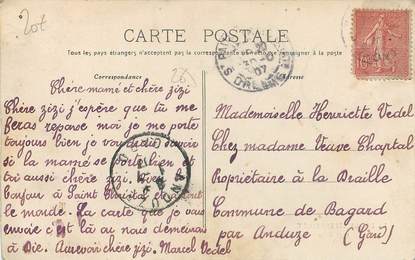 20f
CARTE POSTALE
Tous les pays étrangers n'acceptent pas la correspondance
Correspondance
Adresse
Chère mamé et chère zizi
Chère zizi j'espère que tu me
feras reponse moi je me porte
toujours bien je voudrais savoir
si la mamé se porte bien et
tai aussi chère zizi
le monde. La carte que je vous
envoie c'est là ou nous demeurons
à Die. Aurevoir chère zizi, Marcel Vedel
Mademoiselle Henriette Vedel
Chez madame Veuve Chaptal
Propriétaire à la Draille
Commune de Bagard
par Anduze (Gard)